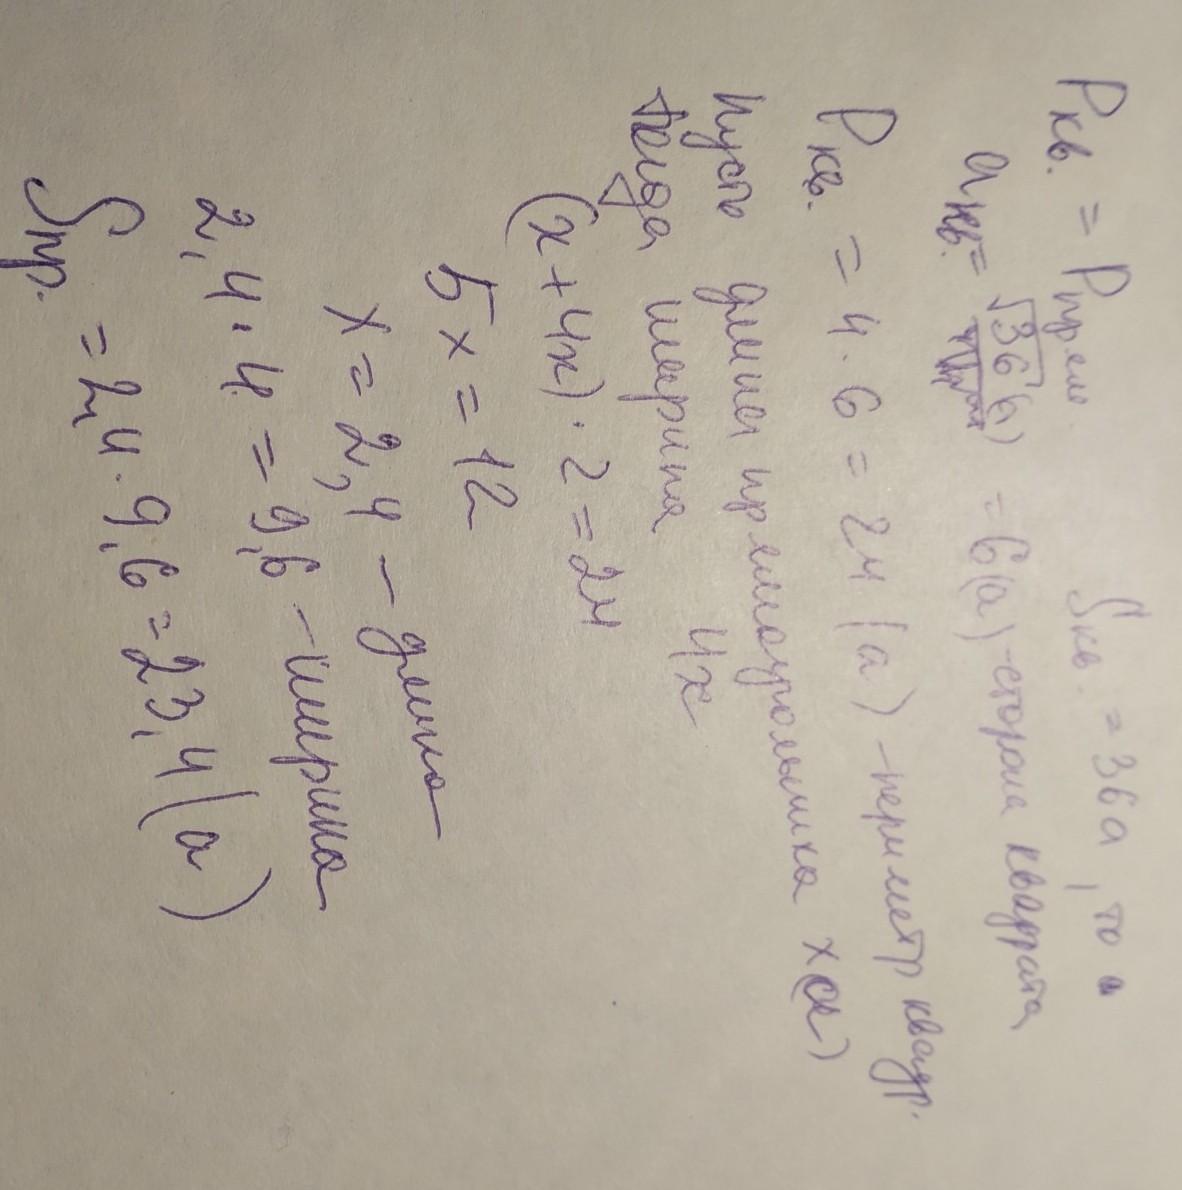 Ркв. = Рпрям Sкв. = 36а, то
акв. = √36 (а) = 6(а) - сторона квадрата
Ркв. = 4 · 6 = 24 (а) - периметр квадр.
Пусть длина прямоугольника х(а)
тогда ширина 4х
(х + 4х) · 2 = 24
5х = 12
х = 2,4 - длина
2,4 · 4 = 9,6 - ширина
Sпр. = 2,4 · 9,6 = 23,4 (а)